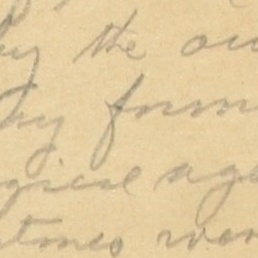 by the ou
by form
gical age
times wer